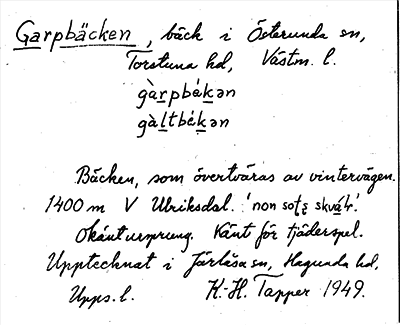 Garpbäcken, bäck i Österunda sn,
Torstuna hd, Västm. l.
gàrpbék̲ən
gàltbék̲ən
Bäcken, som övertväras av vintervägen.
1400 m V Ulriksdal. 'non
Okänt ursprung. Känt för tjäderspel.
Upptecknat i Järlåsa sn, Hagunda hd,
Upps. l. K.-H. Tapper 1949.